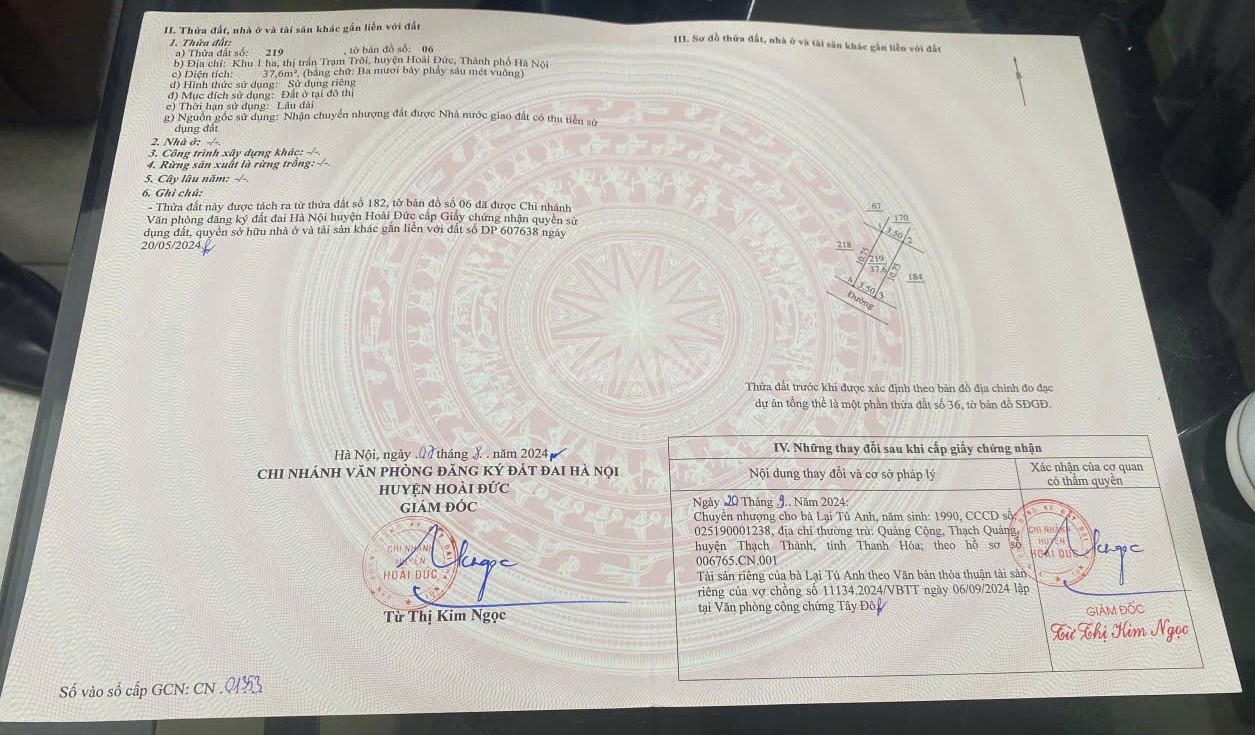 II. Thửa đất, nhà ở và tài sản khác gắn liền với đất
1. Thửa đất:
a) Thửa đất số: 219 , tờ bản đồ số: 06
b) Địa chỉ: Khu 1 ha, thị trấn Trạm Trôi, huyện Hoài Đức, Thành phố Hà Nội
c) Diện tích: 37,6m², (bằng chữ: Ba mươi bảy phẩy sáu mét vuông)
d) Hình thức sử dụng: Sử dụng riêng
đ) Mục đích sử dụng: Đất ở tại đô thị
e) Thời hạn sử dụng: Lâu dài
g) Nguồn gốc sử dụng: Nhận chuyển nhượng đất được Nhà nước giao đất có thu tiền sử
dụng đất
2. Nhà ở: -/-.
3. Công trình xây dựng khác: -/-.
4. Rừng sản xuất là rừng trồng: -/-.
5. Cây lâu năm: -/-.
6. Ghi chú:
- Thửa đất này được tách ra từ thửa đất số 182, tờ bản đồ số 06 đã được Chi nhánh
Văn phòng đăng ký đất đai Hà Nội huyện Hoài Đức cấp Giấy chứng nhận quyền sử
dụng đất, quyền sở hữu nhà ở và tài sản khác gắn liền với đất số DP 607638 ngày
20/05/2024
Hà Nội, ngày 07 tháng 8 . năm 2024
CHI NHÁNH VĂN PHÒNG ĐĂNG KÝ ĐẤT ĐAI HÀ NỘI
HUYỆN HOÀI ĐỨC
GIÁM ĐỐC
CHI NHÁNH
HUYỆN
HOÀI ĐỨC
Từ Thị Kim Ngọc
Số vào sổ cấp GCN: CN .01353
III. Sơ đồ thửa đất, nhà ở và tài sản khác gắn liền với đất
167
170
1 3.50 2
218
10.75
219
37.6
10.75
184
4 3.50 3
Đường
Thửa đất trước khi được xác định theo bản đồ địa chính đo đạc
dự án tổng thể là một phần thửa đất số 36, tờ bản đồ SĐGD.
IV. Những thay đổi sau khi cấp giấy chứng nhận
Nội dung thay đổi và cơ sở pháp lý
Xác nhận của cơ quan
có thẩm quyền
Ngày 20 Tháng 9.. Năm 2024:
Chuyển nhượng cho bà Lại Tú Anh, năm sinh: 1990, CCCD số:
025190001238, địa chỉ thường trú: Quảng Cộng, Thạch Quảng,
huyện Thạch Thành, tỉnh Thanh Hóa; theo hồ sơ số
006765.CN.001
Tài sản riêng của bà Lại Tú Anh theo Văn bản thỏa thuận tài sản
riêng của vợ chồng số 11134.2024/VBTT ngày 06/09/2024 lập
tại Văn phòng công chứng Tây Đô
CHI NHÁNH
HUYỆN
HOÀI ĐỨC
GIÁM ĐỐC
Từ Thị Kim Ngọc